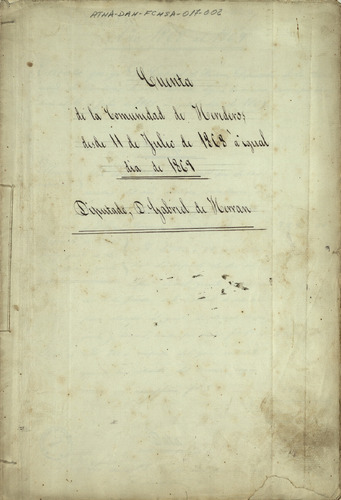 ATHA-DAH-FCHSA-017-002
Cuenta
de la Comunidad de Herederos
desde 11 de Julio de 1868 á igual
dia de 1869
Diputado, D. Gabriel de Herran